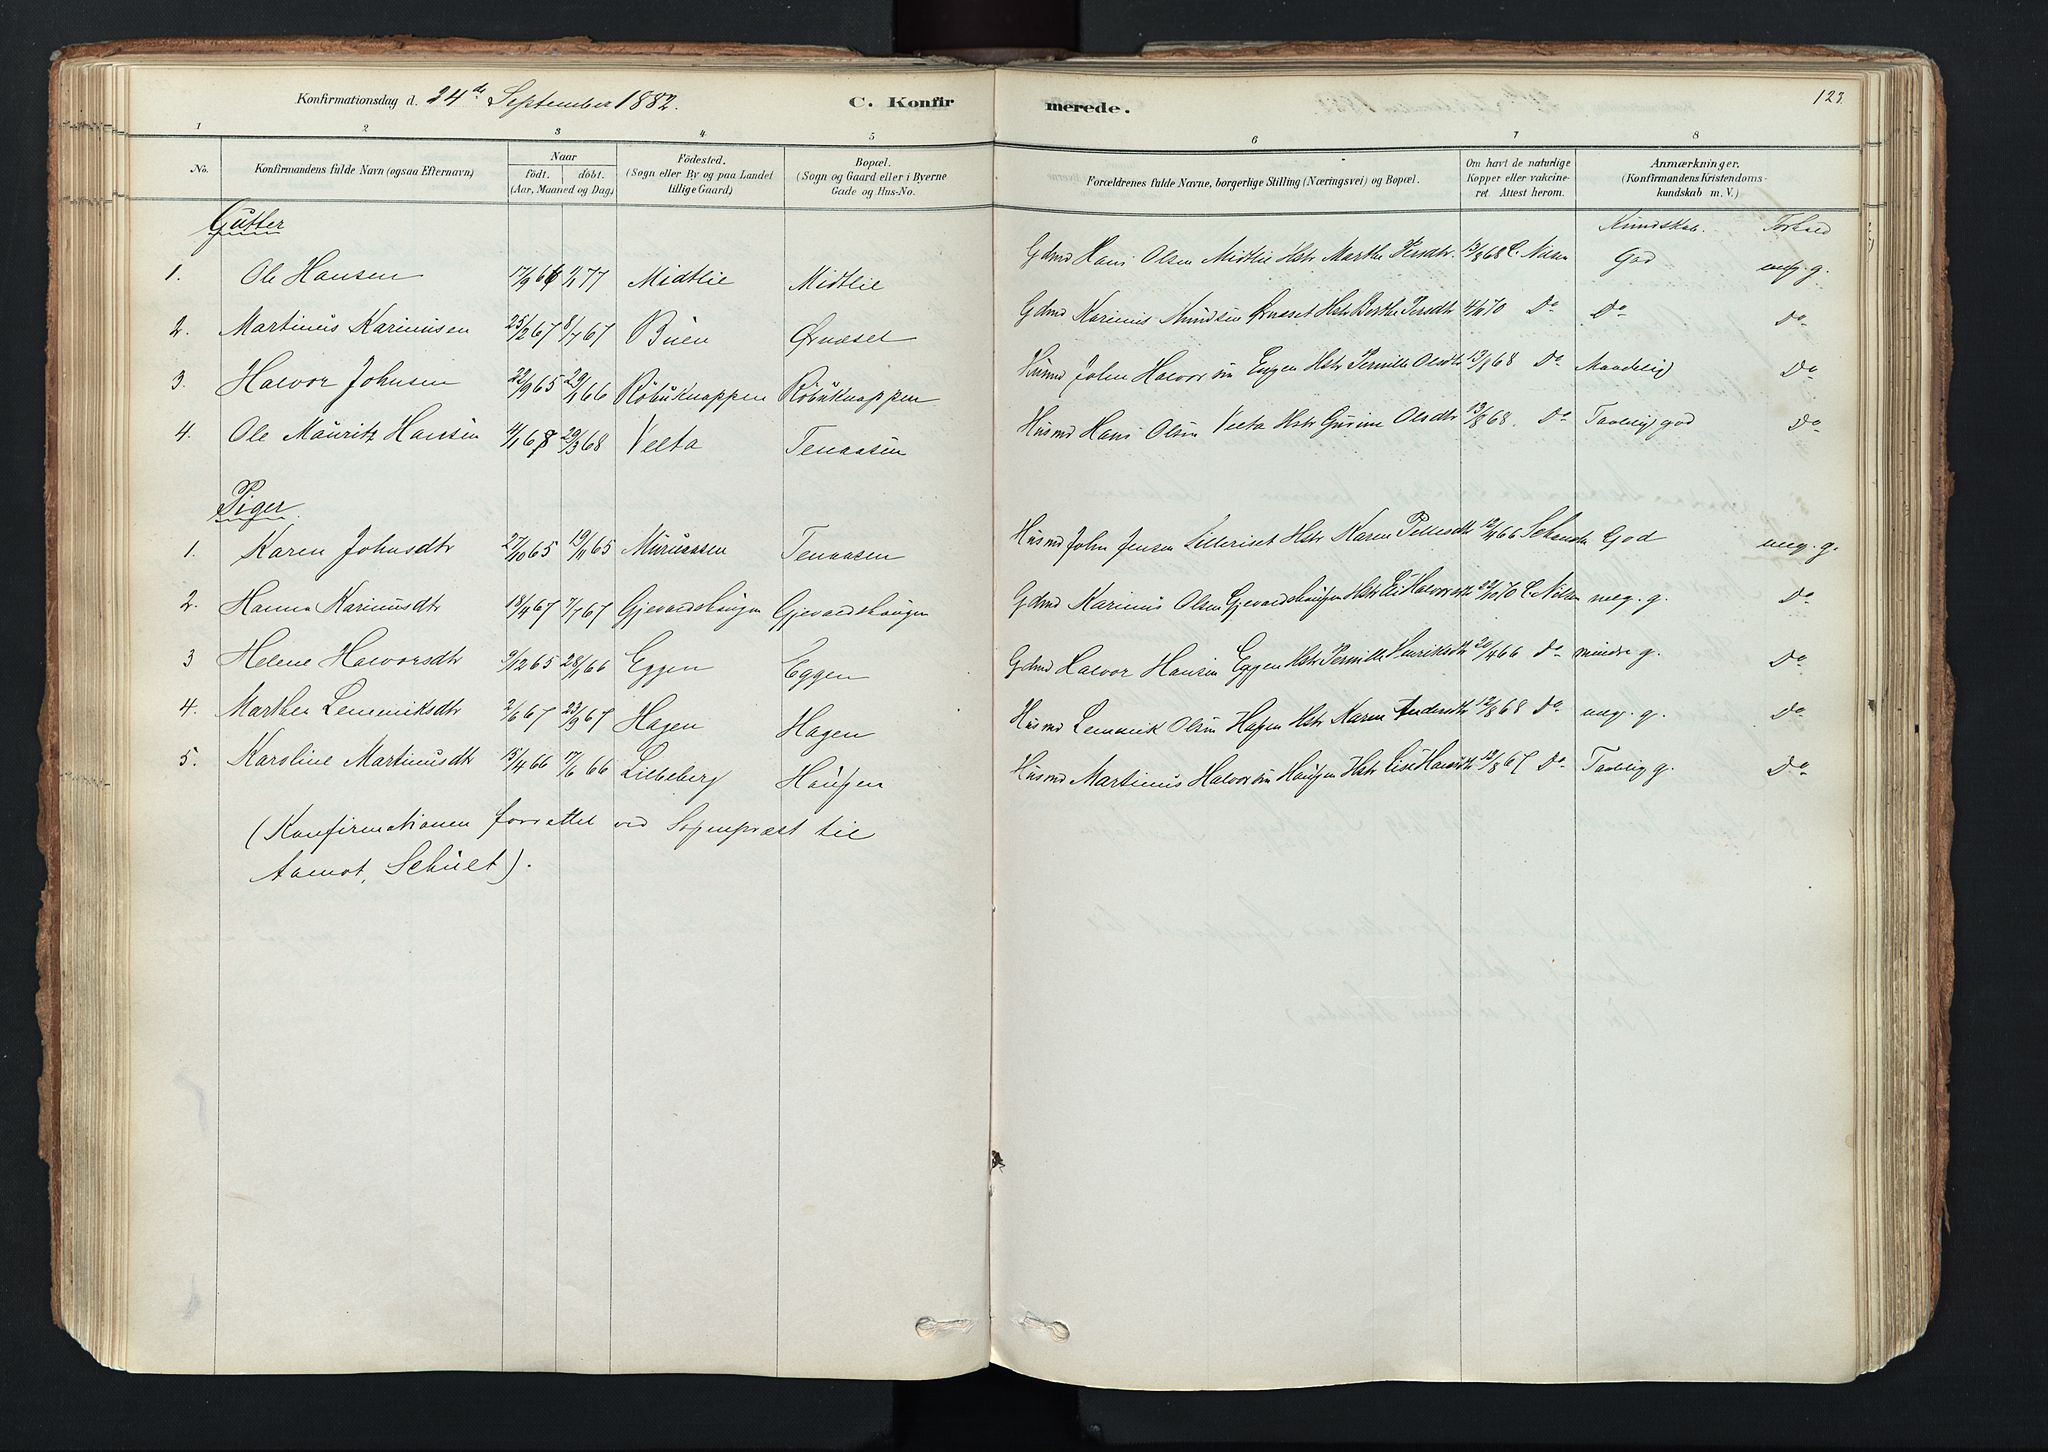 Konfirmationsdag d. 24de September 1882. C. Konfirmerede. 123.
1 2 3 4 5 6 7 8
No. Konfirmandens fulde Navn (ogsaa Efternavn) Naar født. døbt. (Aar, Maaned og Dag) Födested. (Sogn eller By og paa Landet tillige Gaard) Bopæl. (Sogn og Gaard eller i Byerne Gade og Hus-No. Forældrenes fulde Navne, borgerlige Stilling (Næringsvei) og Bopæl. Om havt de naturlige Kopper eller vakcineret. Attest herom. Anmærkninger. (Konfirmandens Kristendomskundskab m. V.)
Gutter Kundskab. Forhold
1. Ole Hansen 17/9 66 Midtlie Midtlie Gdmd Hans Olsen Midtlie Hstr Marthe Persdtr. 13/8 68 C. Nilsen God meg. g.
2. Martinus Karinusen 25/2 67 8/7 67 Buen Ørnæset Gdmd Karinus Amundsen Ørnæset Hstr Berthe Persdtr 4/6 70 Do Do Do
3. Halvor Johnsen 22/9 65 29/1 66 Røbuknappen Røbuknappen Husmd John Halvorsen Engen Hstr Pernille Olsdtr 13/8 68 Do Maadelig Do
4. Ole Mauritz Hansen 4/1 68 29/3 68 Velta Tenaasen Husmd Hans Olsen Velta Hstr Gurine Olsdtr 13/8 68. Do Taalelig god Do
Piger.
1. Karen Johnsdtr 27/10 65 19/11 65 Muruaasen Tenaasen Husmd John Jensen Lilleriset Hstr Karen Pettersdtr 12/4 66 God meg. g.
2. Hanna Karinusdtr 18/4 67 7/7 67 Gjevaldshaugen Gjevaldshaugen Gdmd Karinus Olsen Gjevaldshaugen Hstr Lisi Halvorsdtr 22/10 70 C. Nilsen meg. g. Do
3 Helene Halvorsdtr 9/12 65 28/1 66 Eggen Eggen Gdmd Halvor Hansen Eggen Hstr Pernille Henriksdtr 20/4 66 Do mindre g. Do
4. Marthea Lemmiksdtr 2/6 67 23/9 67 Hagen Hagen Husmd Lemmik Olsen Hagen Hstr Karen Andersdtr 12/8 68 Do meg. g. Do
5. Karoline Martinusdtr 15/4 66 17/6 66 Lilleberg Haugen Husmd Martinus Halvorsen Haugen Hstr Lise Hansdtr 12/8 67 Do Taalelig g. Do
(Konfirmationen forrettet ved Sognepræst til
Aamot, Schult).